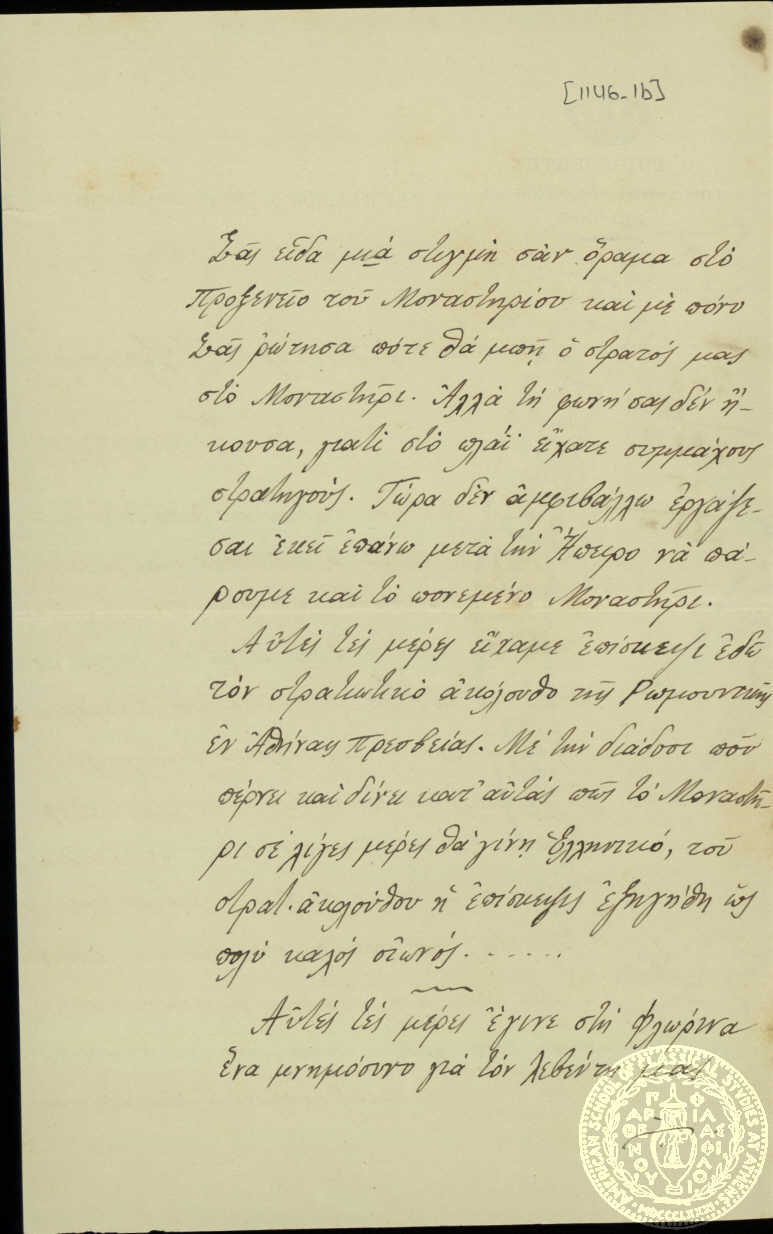 [1146-1b]
Σᾶς εἶδα μιὰ στιγμὴ σὰν ὅραμα στὸ
Προξενεῖο τοῦ Μοναστηρίου καὶ μὲ πόνο
Σᾶς ρώτησα πότε θὰ μπῇ ὁ στρατός μας
στὸ Μοναστῆρι. Ἀλλὰ τὴ φωνή σας δὲν ἤ-
κουσα, γιατὶ στὸ πλάϊ εἴχατε συμμάχους
στρατηγούς. Τώρα δὲν ἀμφιβάλλω ἐργάζε-
σαι ἐκεῖ ἐπάνω μετὰ τὴν Ἤπειρο νὰ πά-
ρουμε καὶ τὸ πονεμένο Μοναστῆρι.
Αὐτὲς τὲς μέρες εἴχαμε ἐπίσκεψι ἐδῶ
τὸν στρατιωτικὸ ἀκόλουθο τῆς Ρωμουνικῆς
ἐν Ἀθήναις πρεσβείας. Μὲ τὴν διάδοσι ποῦ
πέρνει καὶ δίνει κατ' αὐτὰς πῶς τὸ Μοναστῆ-
ρι σὲ λίγες μέρες θὰ γίνῃ Ἑλληνικό, τοῦ
στρατ. ἀκολούθου ἡ ἐπίσκεψις ἐξηγήθη ὡς
πολὺ καλὸς οἰωνός......
Αὐτὲς τὲς μέρες ἔγινε στὴ Φλώρινα
ἕνα μνημόσυνο γιὰ τὸν λεβέντη μας
AMERICAN SCHOOL OF CLASSICAL STUDIES AT ATHENS
MDCCCLXXXI